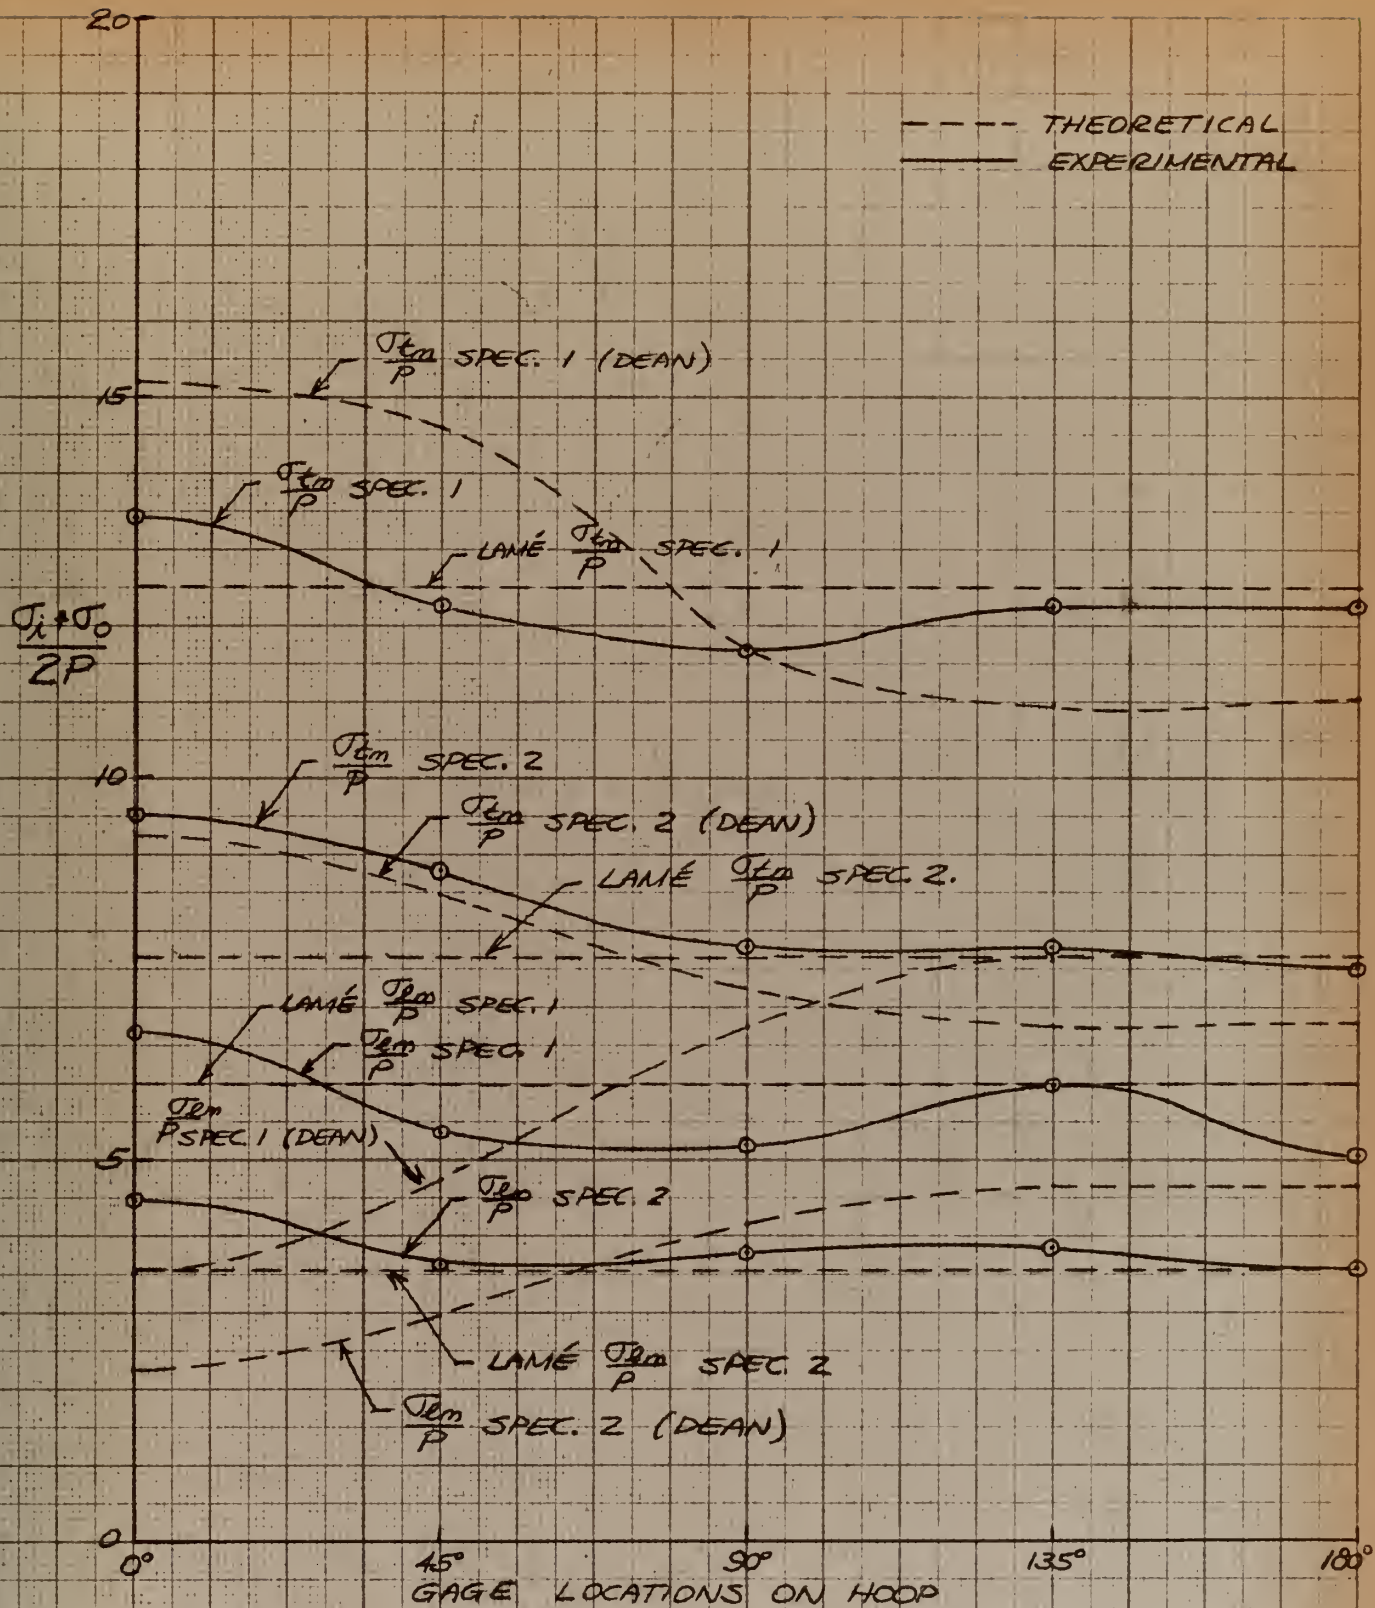 20
---- THEORETICAL
—— EXPERIMENTAL
σtm/P SPEC. 1 (DEAN)
15
σtm/P SPEC. 1
LAMÉ σtm/P SPEC. 1
σi+σo/2P
σtm/P SPEC. 2
10
σtm/P SPEC. 2 (DEAN)
LAMÉ σtm/P SPEC. 2.
LAMÉ σlm/P SPEC. 1
σlm/P SPEC. 1
σlm/P SPEC. 1 (DEAN)
5
σlm/P SPEC. 2
LAMÉ σlm/P SPEC. 2
σlm/P SPEC. 2 (DEAN)
0
0° 45° 90° 135° 180°
GAGE LOCATIONS ON HOOP